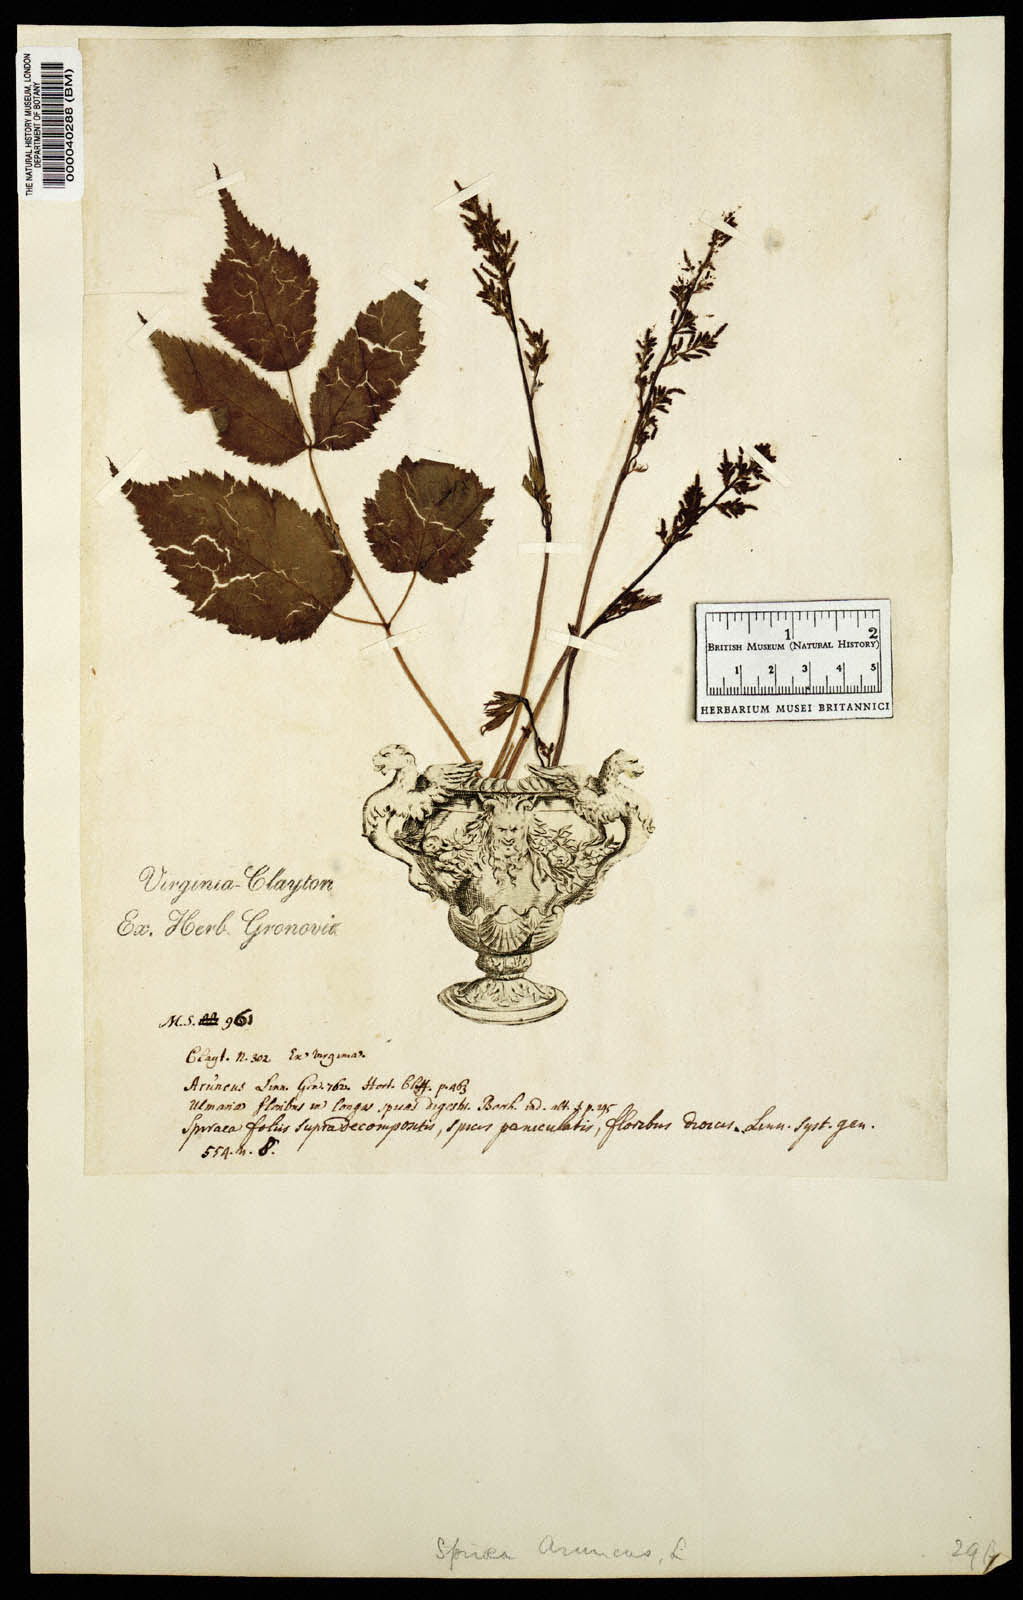 THE NATURAL HISTORY MUSEUM, LONDON
DEPARTMENT OF BOTANY
000040288 (BM)
1 2
BRITISH MUSEUM (NATURAL HISTORY)
1 2 3 4 5
HERBARIUM MUSEI BRITANNICI
Virginia-Clayton
Ex. Herb. Gronovii
M.S. 961
Clayt. n. 302 Ex Virginia.
Aruncus Linn. Gen. 762. Hort. Cliff. p. 463
Ulmaria floribus in longas spicas digestis. Boerh. ind. alt. p. 295
Spiraea foliis supradecompositis, spicis paniculatis, floribus dioicis. Linn. Syst. gen.
554. n. 8.
Spiraea Aruncus, L